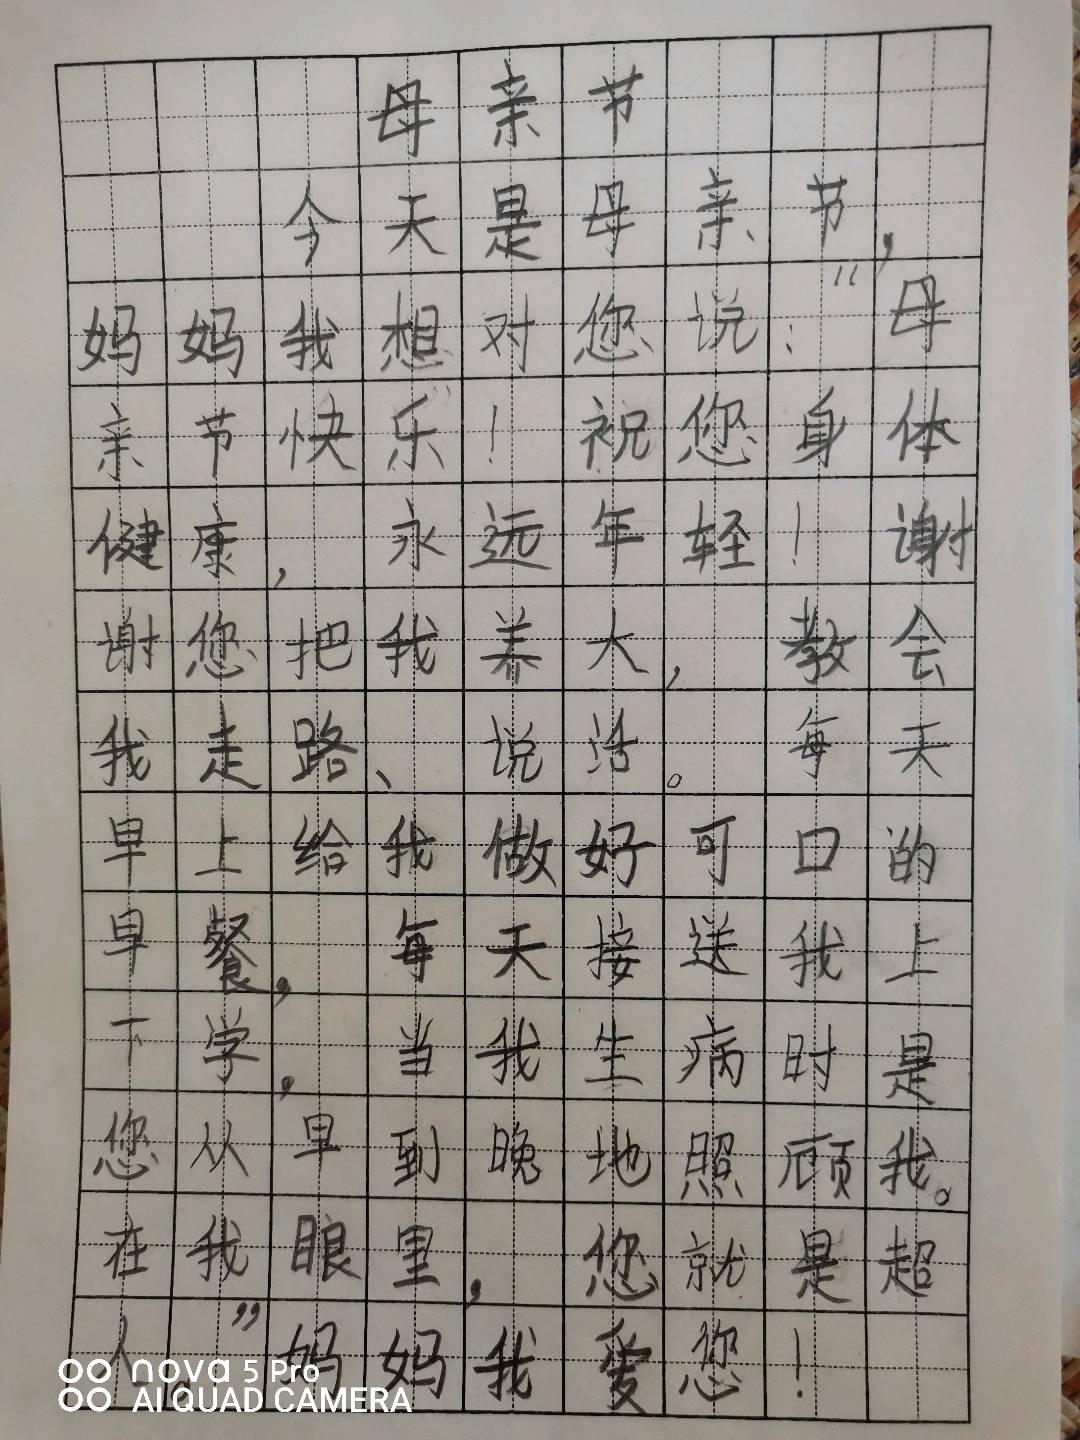 母亲节
今天是母亲节,
妈妈我想对您说:“母
亲节快乐”!祝您身体
健康,永远年轻!谢
谢您把我养大,教会
我走路、说话。每天
早上给我做好可口的
早餐,每天接送我上
下学,当我生病时是
您从早到晚地照顾我。
在我眼里,您就是超
人。”妈妈我爱您!
nova 5 Pro
AI QUAD CAMERA